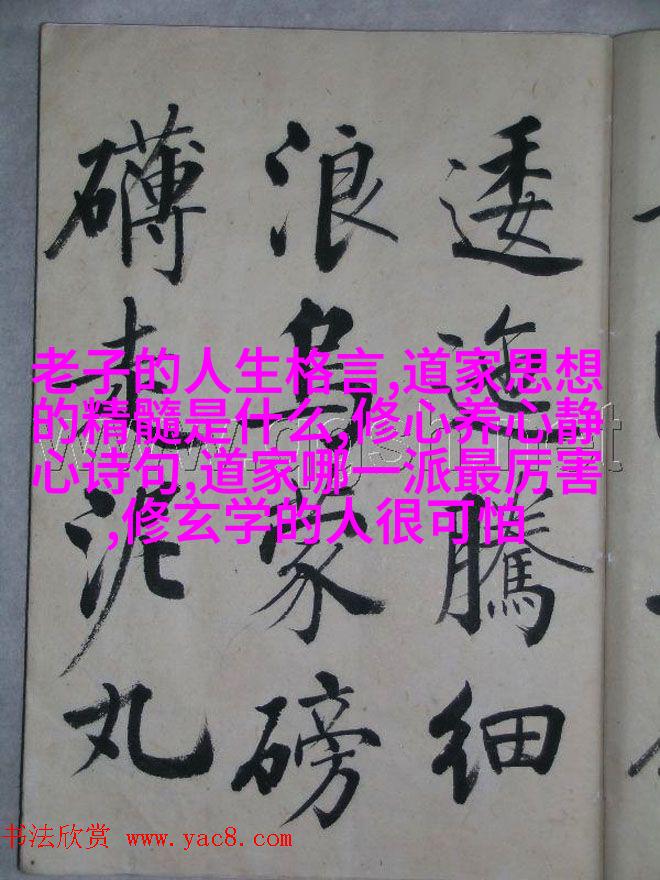 逶迤騰細
浪烏蒙磅
礴走泥丸
老子的人生格言,道家思想
的精髓是什么,修心养心静
心诗句,道家哪一派最厉害
,修玄学的人很可怕
书法欣赏 www.yac8.com